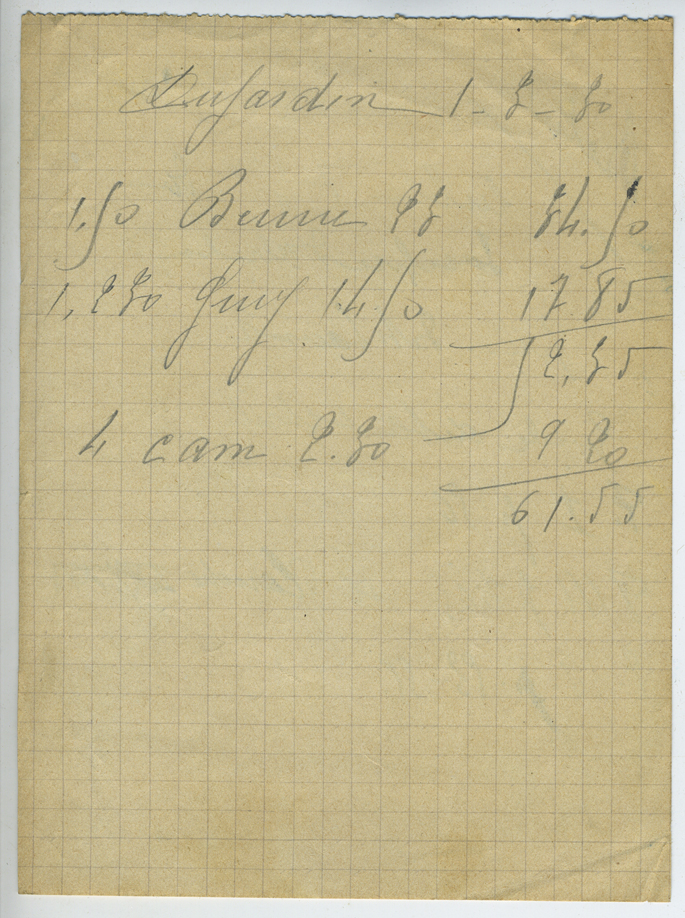 Dujardin 1-3-30
1.50 Beurre 23 34.50
1.230 Gruy 14.50 17 85
52.35
4 cam 2.30 9 20
61.55